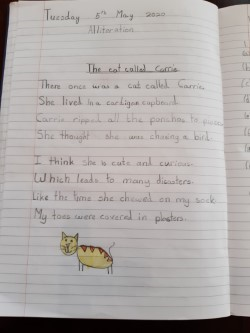 Tuesday 5th May 2020
Alliteration
The cat called Carrie
There once was a cat called Carrie
She lived in a cardigan cupboard.
Carrie ripped all the ponchos to pieces
She thought she was chasing a bird.
I think she is cute and curious
Which leads to many disasters.
Like the time she chewed on my sock
My toes were covered in plasters.